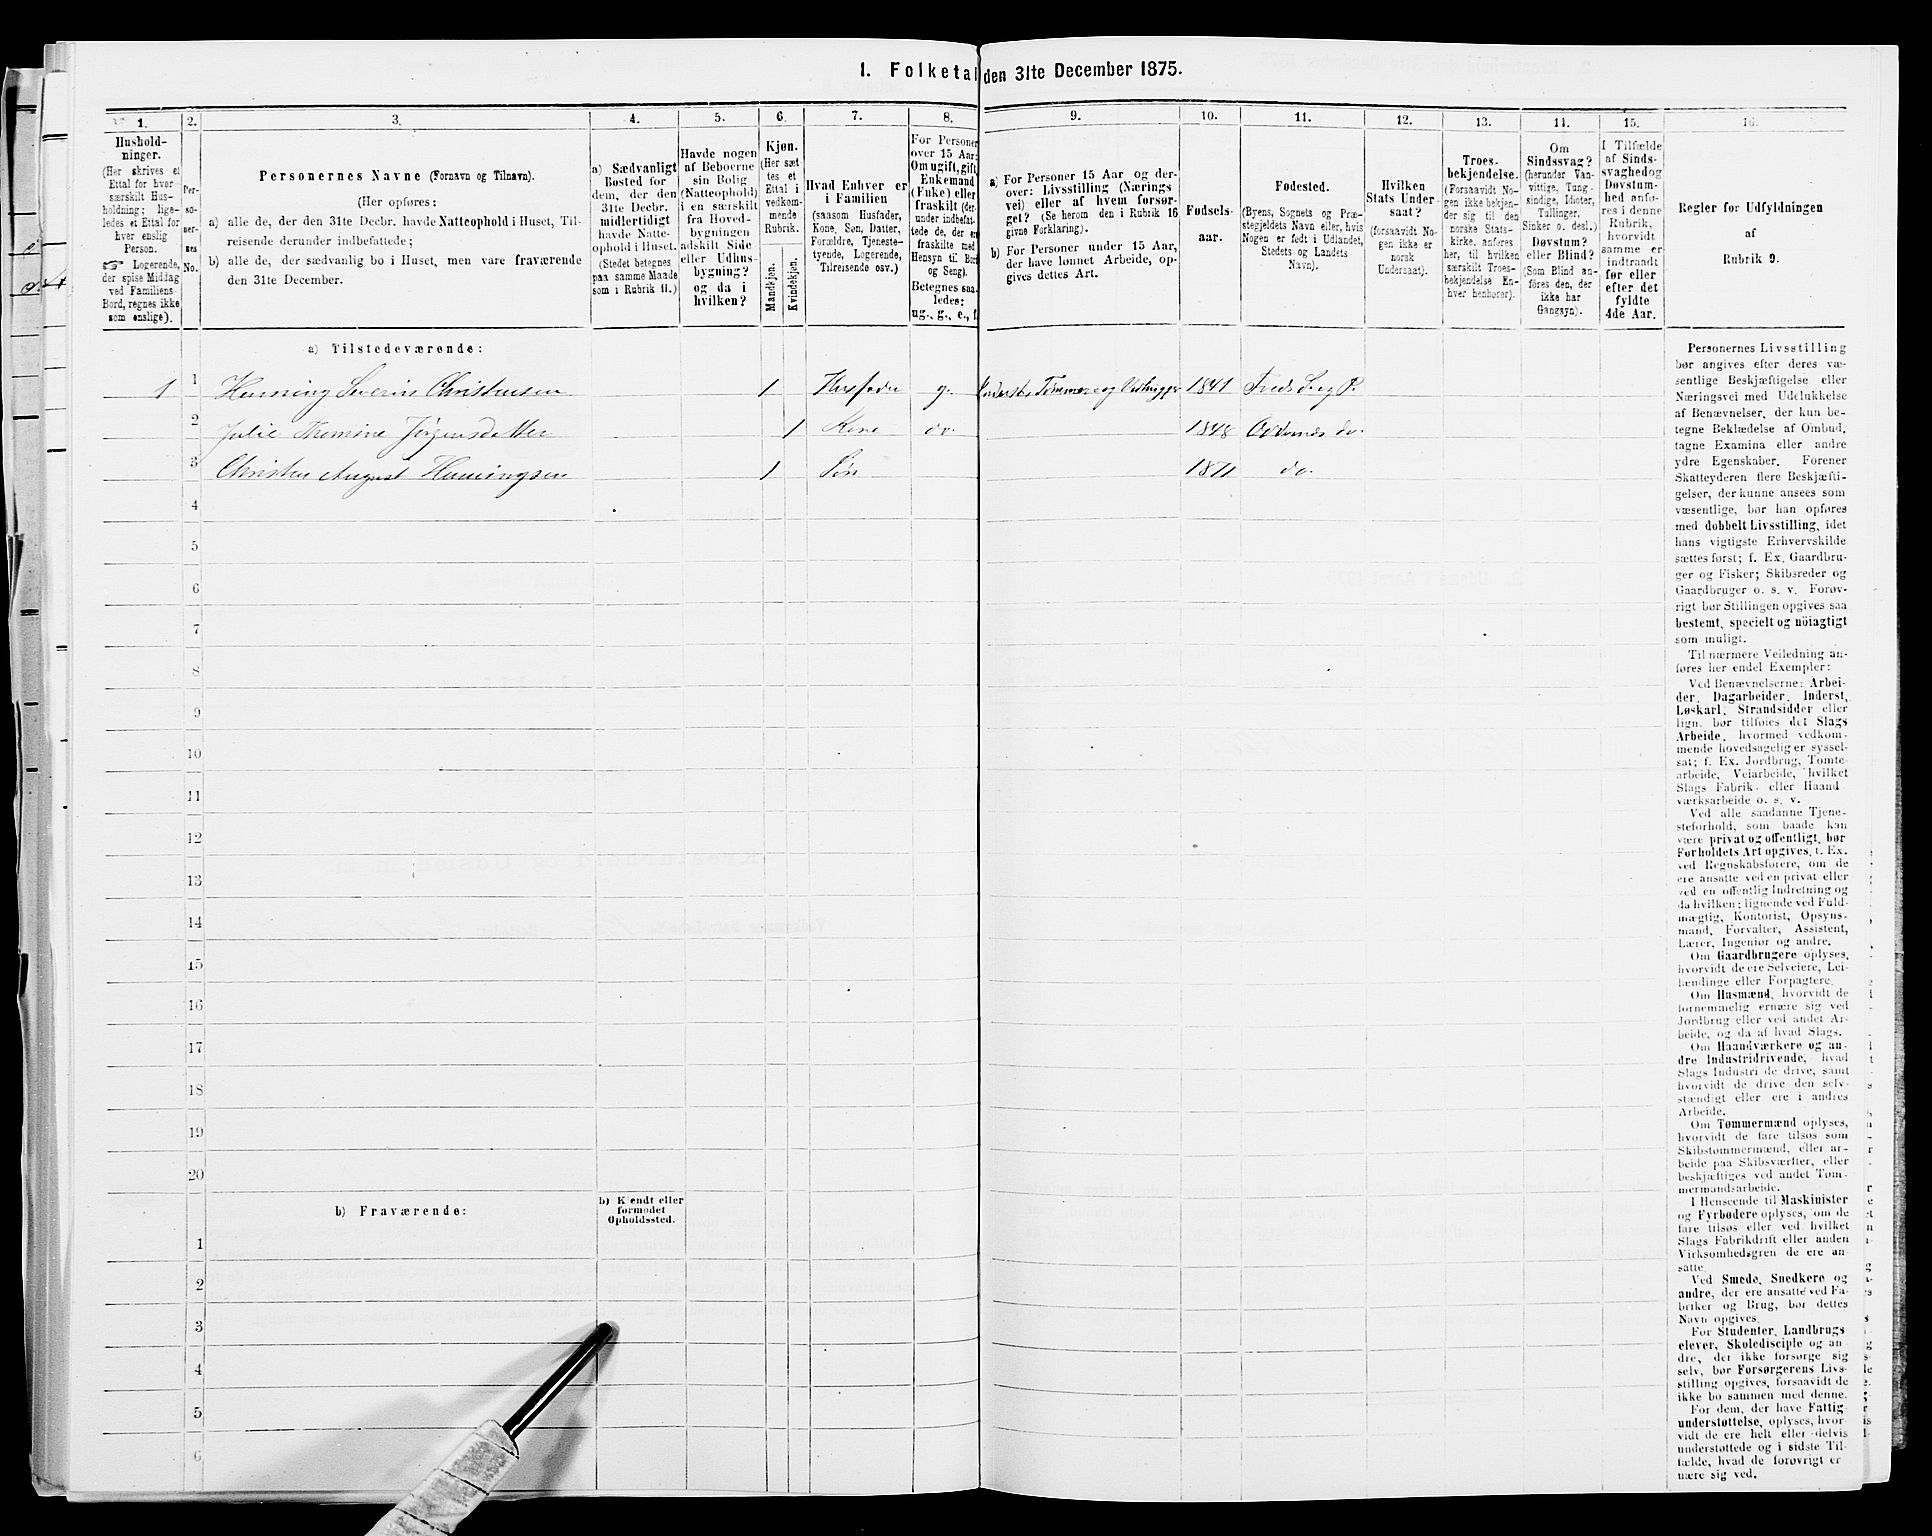 1. Folketal den 31te December 1875.
1.
2.
3.
4.
5.
6.
7.
8.
9.
10.
11.
12.
13.
14.
15.
16.
Hushold-
ninger.
(Her skrives et
Ettal for hver
særskilt Hus-
holdning; lige-
ledes et Ettal for
hver enslig
Person.
☞ Logerende,
der spise Middag
ved Familiens
Bord, regnes ikke
som enslige).
Per-
so-
ner-
nes
No.
Personernes Navne (Fornavn og Tilnavn).
(Her opføres:
a) alle de, der den 31te Decbr. havde Natteophold i Huset, Til-
reisende derunder indbefattede;
b) alle de, der sædvanlig bo i Huset, men vare fraværende
den 31te December.
a) Sædvanligt
Bosted for
dem, der den
31te Decbr.
midlertidigt
havde Natte-
ophold i Huset.
(Stedet betegnes
paa samme Maade
som i Rubrik 11.)
Havde nogen
af Beboerne
sin Bolig
(Natteophold)
i en særskilt
fra Hoved-
bygningen
adskilt Side
eller Udhus-
bygning?
og da i
hvilken?
Kjøn.
(Her sæt
tes et
Ettal i
vedkom-
mende
Rubrik.
Mandkjøn.
Kvindekjøn.
Hvad Enhver er
i Familien
(saasom Husfader,
Kone, Søn, Datter,
Forældre, Tjeneste-
tyende, Logerende,
Tilreisende osv.)
For Personer
over 15 Aar:
Om ugift, gift,
Enkemand
(Enke) eller
fraskilt (der-
under indbefat-
tede de, der ere
fraskilte med
Hensyn til Bord
og Seng).
Betegnes saa-
ledes:
ug., g., e., f.
a) For Personer 15 Aar og der-
over: Livsstilling (Nærings
vei) eller af hvem forsør-
get? (Se herom den i Rubrik 16
givne Forklaring).
b) For Personer under 15 Aar,
der have lønnet Arbeide, op-
gives dettes Art.
Fødsels-
aar.
Fødested.
(Byens, Sognets og Præ-
stegjeldets Navn eller, hvis
Nogen er født i Udlandet,
Stedets og Landets
Navn).
Hvilken
Stats Under-
saat?
(forsaavidt No-
gen ikke er
norsk
Undersaat).
Troes-
bekjendelse.
(Forsaavidt No-
gen ikke bekjen-
der sig til den
norske Stats-
kirke, anføres
her, til hvilken
særskilt Troes-
bekjendelse En-
hver henhører).
Om
Sindssvag?
(herunder Van-
vittige, Tung-
sindige, Idioter,
Tullinger,
Sinker o. desl.)
Døvstum?
eller Blind?
(Som Blind an-
føres den, der
ikke har
Gangsyn).
I Tilfælde
af Sinds-
svaghed og
Døvstum-
hed anfø-
res i denne
Rubrik,
hvorvidt
samme er
indtraadt
før eller
efter det
fyldte
4de Aar.
Regler for Udfyldningen
af
Rubrik 9.
a) Tilstedeværende:
1 1 Henning Severin Christensen 1 Husfader g. Inderst, Tømmer og Vedhugger 1841 Freds S. og P.
2 Julie Thomine Jørgensdatter 1 Kone do. 1848 Oddernes do.
3 Christen August Henningsen 1 Søn 1871 do.
4
5
6
7
8
9
10
11
12
13
14
15
16
17
18
19
20
b) Fraværende:
b) Kjendt eller
formodet
Opholdssted.
1
2
3
4
5
6
Personernes Livsstilling
bør angives efter deres væ-
sentlige Beskjæftigelse eller
Næringsvei med Udelukkelse
af Benævnelser, der kun be-
tegne Beklædelse af Ombud,
tagne Examina eller andre
ydre Egenskaber. Forener
Skatteyderen flere Beskjæfti-
gelser, der kunne ansees som
væsentlige, bør han opføres
med dobbelt Livsstilling, idet
hans vigtigste Erhvervskilde
sættes først; f. Ex. Gaardbru-
ger og Fisker; Skibsreder og
Gaardbruger o. s. v. Forøv-
rigt bør Stillingen opgives saa
bestemt, specielt og nöiagtigt
som muligt.
Til nærmere Veiledning an-
føres her endel Exempler:
Ved Benævnelserne: Arbei-
der, Dagarbeider, Inderst,
Løskarl, Strandsidder eller
lign. bør tilføies det Slags
Arbeide, hvormed vedkom-
mende hovedsagelig er syssel-
sat; f. Ex. Jordbrug, Tomte-
arbeide, Veiarbeide, hvilket
Slags Fabrik- eller Haand
værksarbeide o. s. v.
Ved alle saadanne Tjene-
steforhold, som baade kan
være privat og offentligt, bør
Forholdets Art opgives, f. Ex.
ved Regnskabsførere, om de
ere ansatte ved en privat eller
ved en offentlig Indretning og
da hvilken; lignende ved Fuld-
mægtig, Kontorist, Opsyns-
mand, Forvalter, Assistent,
Lærer, Ingeniør og andre.
Om Gaardbrugere oplyses,
hvorvidt de ere Selveiere, Lei-
lændinge eller Forpagtere.
Om Husmænd, hvorvidt de
fornemmelig ernære sig ved
Jordbrug eller ved andet Ar-
beide, og da af hvad Slags.
Om Haandværkere og an-
dre Industridrivende, hvad
Slags Industri de drive, samt
hvorvidt de drive den selv-
stændigt eller ere i andres
Arbeide.
Om Tømmermænd oplyses,
hvorvidt de fare tilsøs som
Skibstømmermænd, eller ar-
beide paa Skibsværfter, eller
beskjæftiges ved andet Tøm-
mermandsarbeide.
I Henseende til Maskinister
og Fyrbødere oplyses, om de
fare tilsøs eller ved hvilket
Slags Fabrikdrift eller anden
Virksomhedsgren de ere an-
satte.
Ved Smede, Snedkere og
andre, der ere ansatte ved Fa-
briker og Brug, bør dettes
Navn opgives.
For Studenter, Landbrugs
elever, Skoledisciple og an-
dre, der ikke forsørge sig
selv, bør Forsørgerens Livs-
stilling opgives, forsaavidt de
ikke bo sammen med denne.
For dem, der have Fattig
understøttelse, oplyses, hvor-
vidt de ere helt eller delvis
understøttede og i sidste Til-
fælde, hvad de forøvrigt er
nære sig ved.